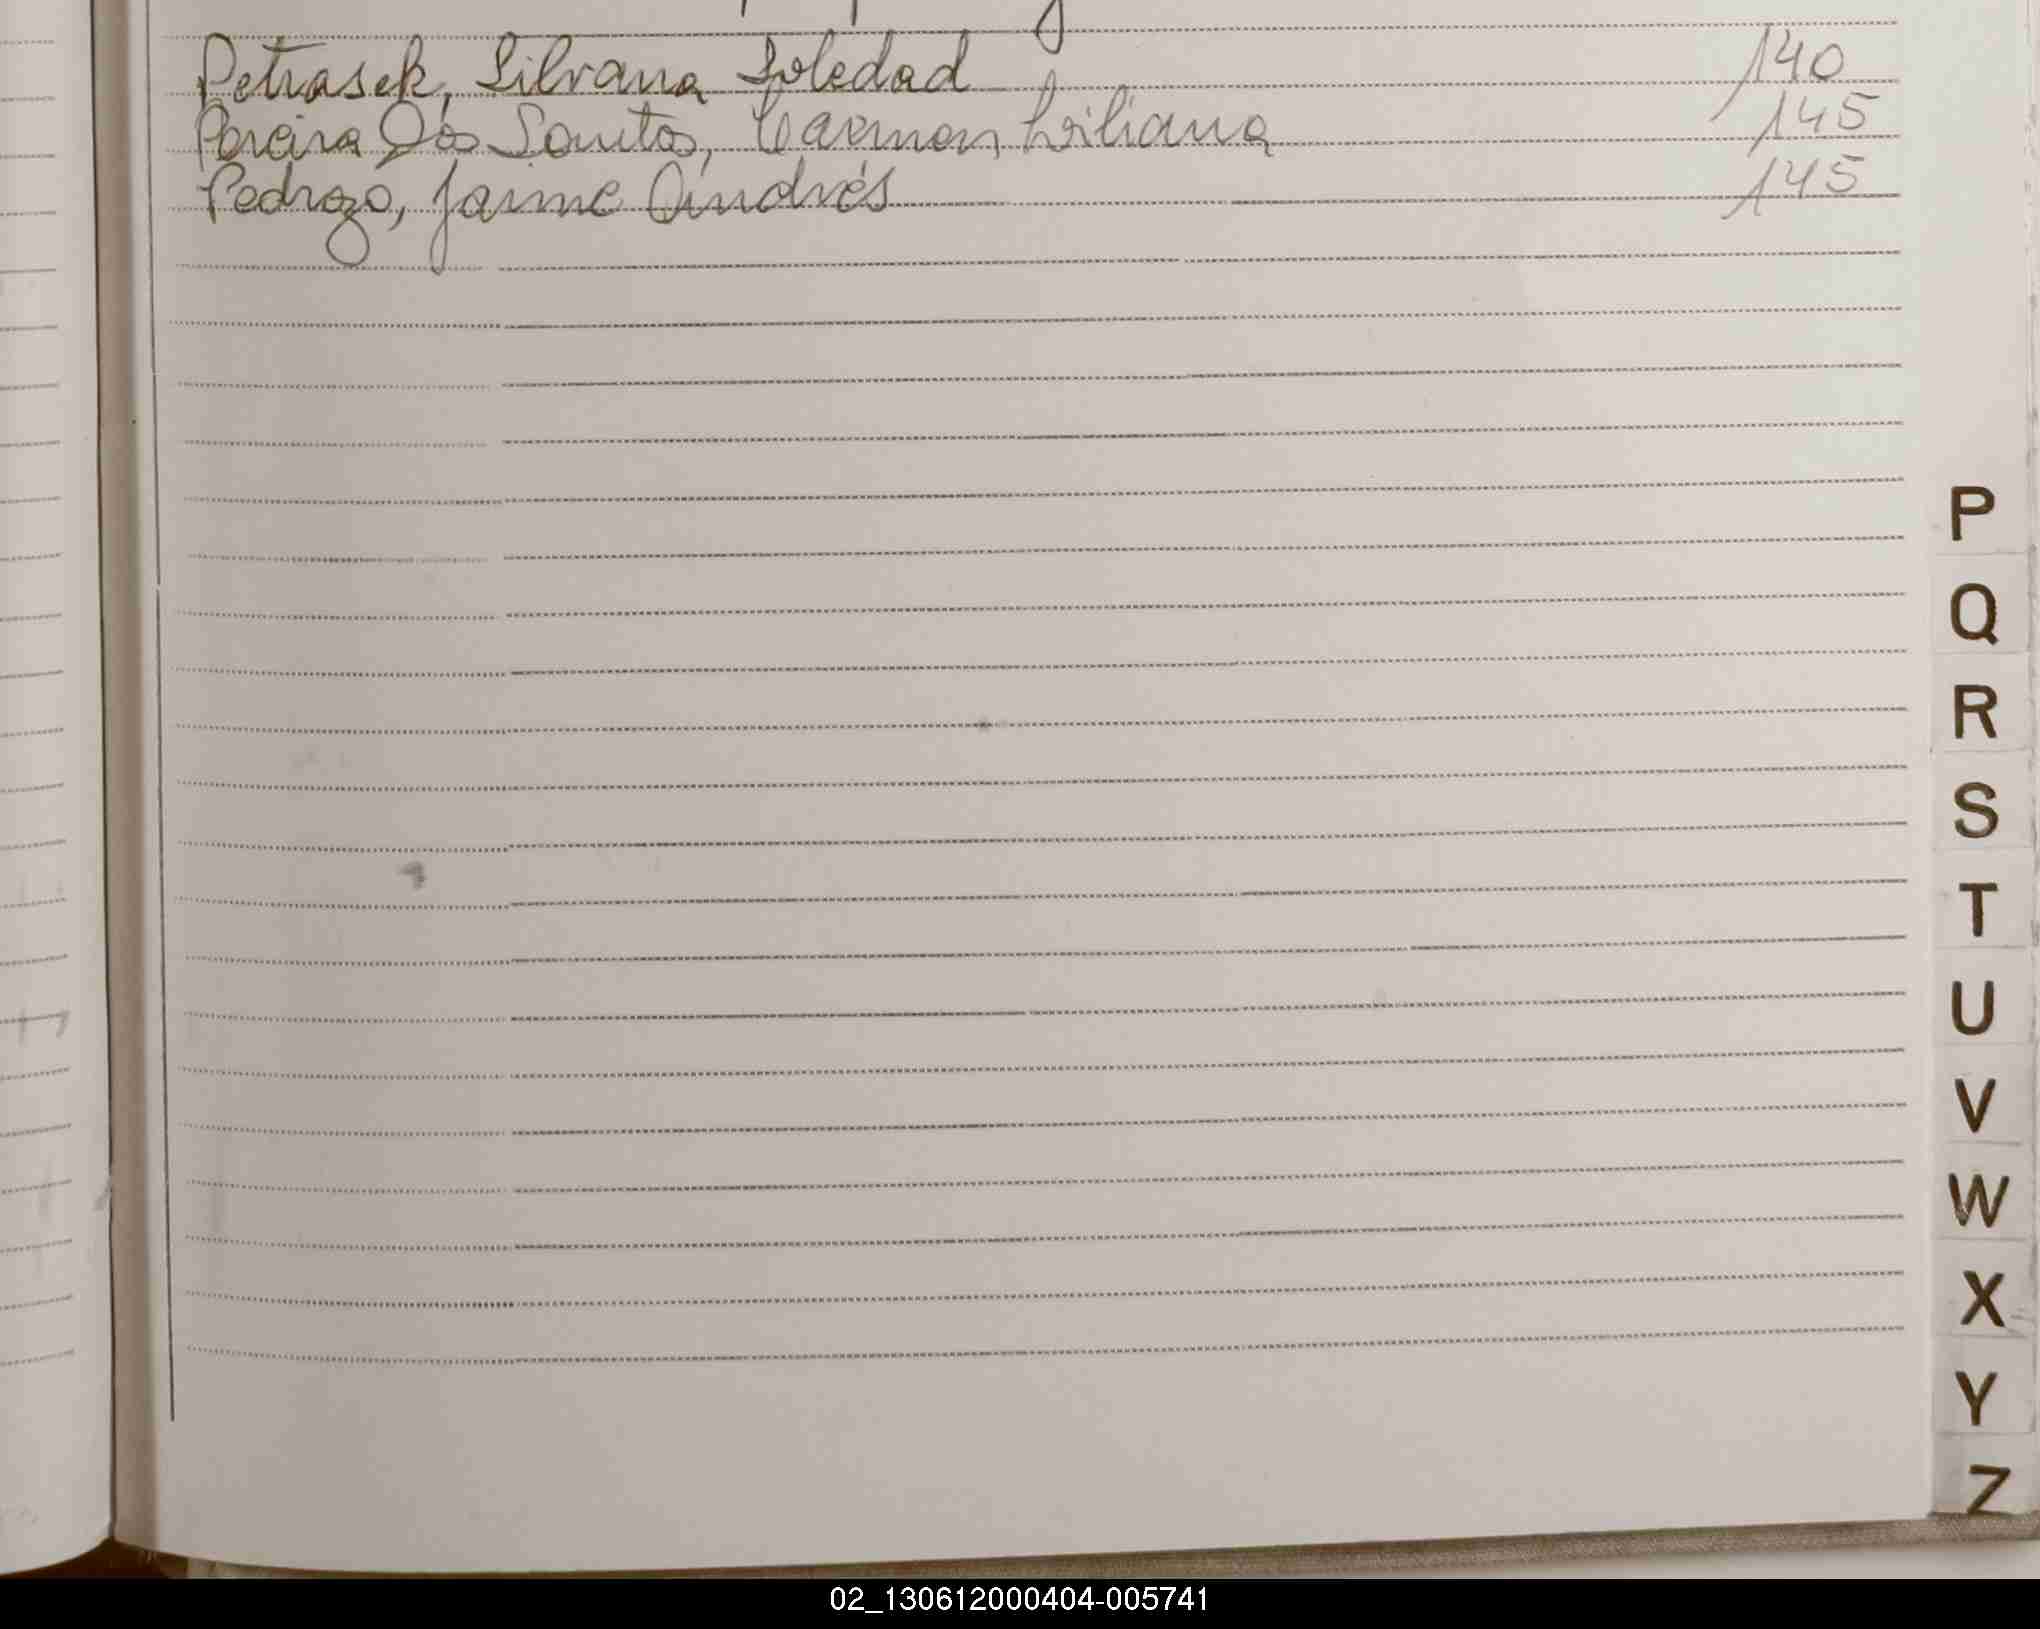 Petrasek, Silvana Soledad 140
Pereira Dos Santos, Carmen Liliana 145
Pedrozo, Jaime Andrés 145
P
Q
R
S
T
U
V
W
X
Y
Z
02_130612000404-005741